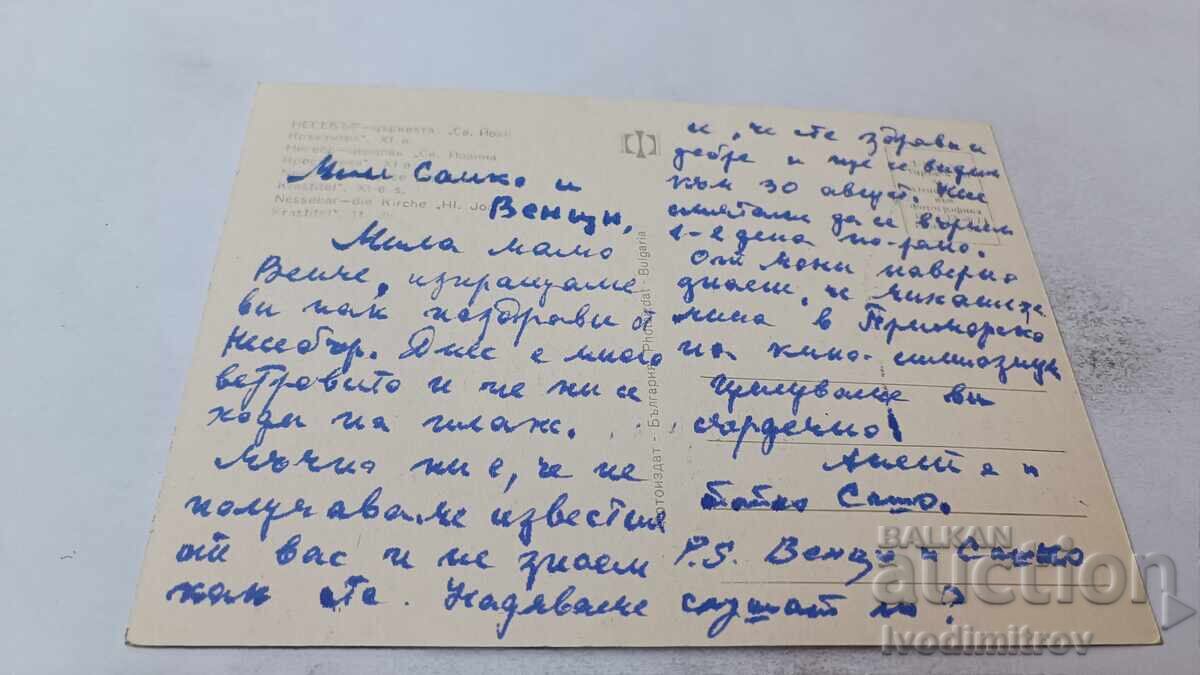 НЕСЕБЪР—църквата „Св. Йоан
Кръстител", XI в.
Несебр—церковь „Св. Иоанна
XI в.
Krastitel", XI-e s.
Nessebar—die Kirche „Hl. Jo
Krastitel"
Мили Сашко и
Венци,
Мила мамо
Венче, изпращаме
ви пак поздрави от
Несебър. Днес е много
ветровито и не ни се
ходи на плаж.
Мъчно ни е, че не
получаваме известия
от вас и не знаем
как сте. Надяваме
се, че сте здрави и
добре и ще се видим
към 30 август. Ние
смятаме да се върнем
1-2 дена по-рано.
От мони наверно
знаеш, че
мина в Приморско
на кино-
Целуваме ви
сърдечно!
Анета и
татко Сашо.
P.S. Венци и Сашко
слушат ли?
Фотоиздат - България Photoizdat - Bulgaria
BALKAN
auction
Ivodimitrov